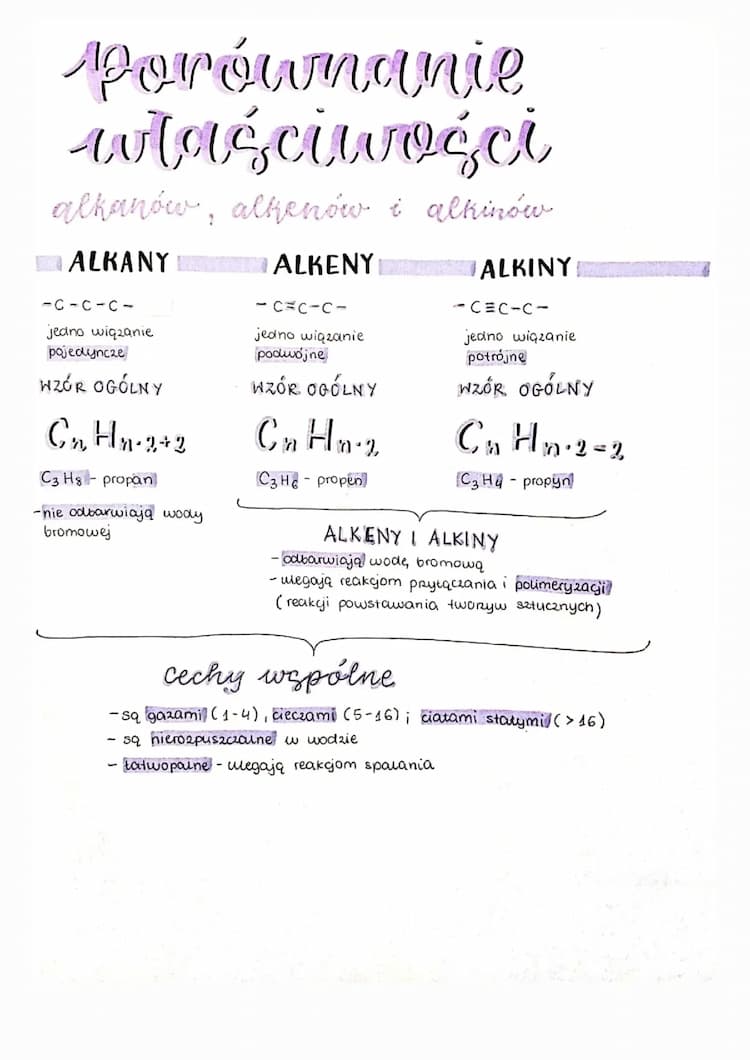 porównanie
właściwości
alkanów, alkenów i alkinów
ALKANY ALKENY ALKINY
-C-C-C-
jedno wiązanie
pojedyncze
WZÓR OGÓLNY
CnHn·2+2
C3H8 - propan
-nie odbarwiają wody
bromowej
-C=C-C-
jedno wiązanie
podwójne
WZÓR OGÓLNY
CnHn·2
C3H6 - propen
-C≡C-C-
jedno wiązanie
potrójne
WZÓR OGÓLNY
CnHn·2=2
C3H4 - propyn
ALKENY I ALKINY
-odbarwiają wodę bromową
-ulegają reakcjom przyłączania i polimeryzacji
(reakcji powstawania tworzyw sztucznych)
cechy wspólne
-są gazami (1-4), cieczami (5-16); ciałami stałymi (>16)
- są nierozpuszczalne w wodzie
- łatwopalne - ulegają reakcjom spalania